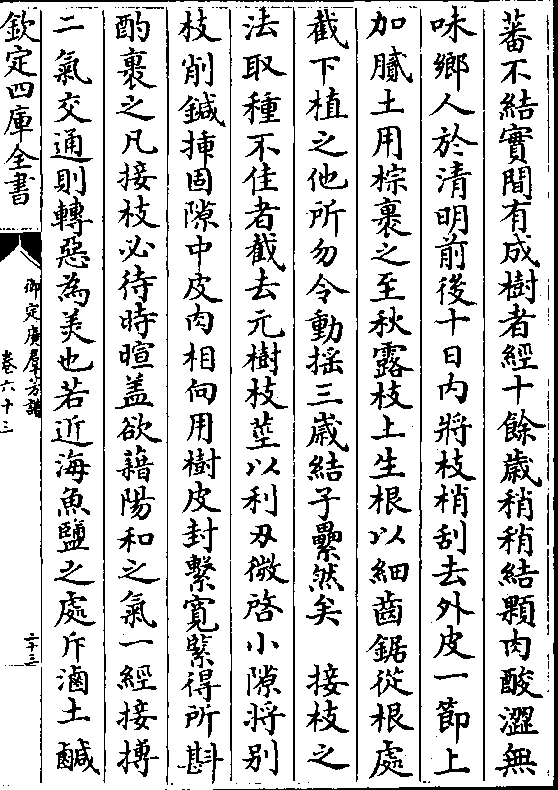 蕃不結實間有成樹者經十餘歳稍稍結顆肉酸澀無
味鄉人於清明前後十日内將枝梢刮去外皮一節上
加膩土用棕裹之至秋露枝上生根以細齒鋸從根處
截下植之他所勿令動揺三歳結子纍然矣　接枝之
法取種不佳者截去元樹枝莖以利刃微啓小隙将别
枝削鍼揷固隙中皮肉相向用樹皮封繫寛緊得所斟
酌裹之凡接枝必待時暄盖欲藉陽和之氣一經接摶
二氣交通則轉惡為美也若近海魚鹽之處斥滷土鹹
欽定四庫全書
御定廣羣芳譜
卷六十三
二十三